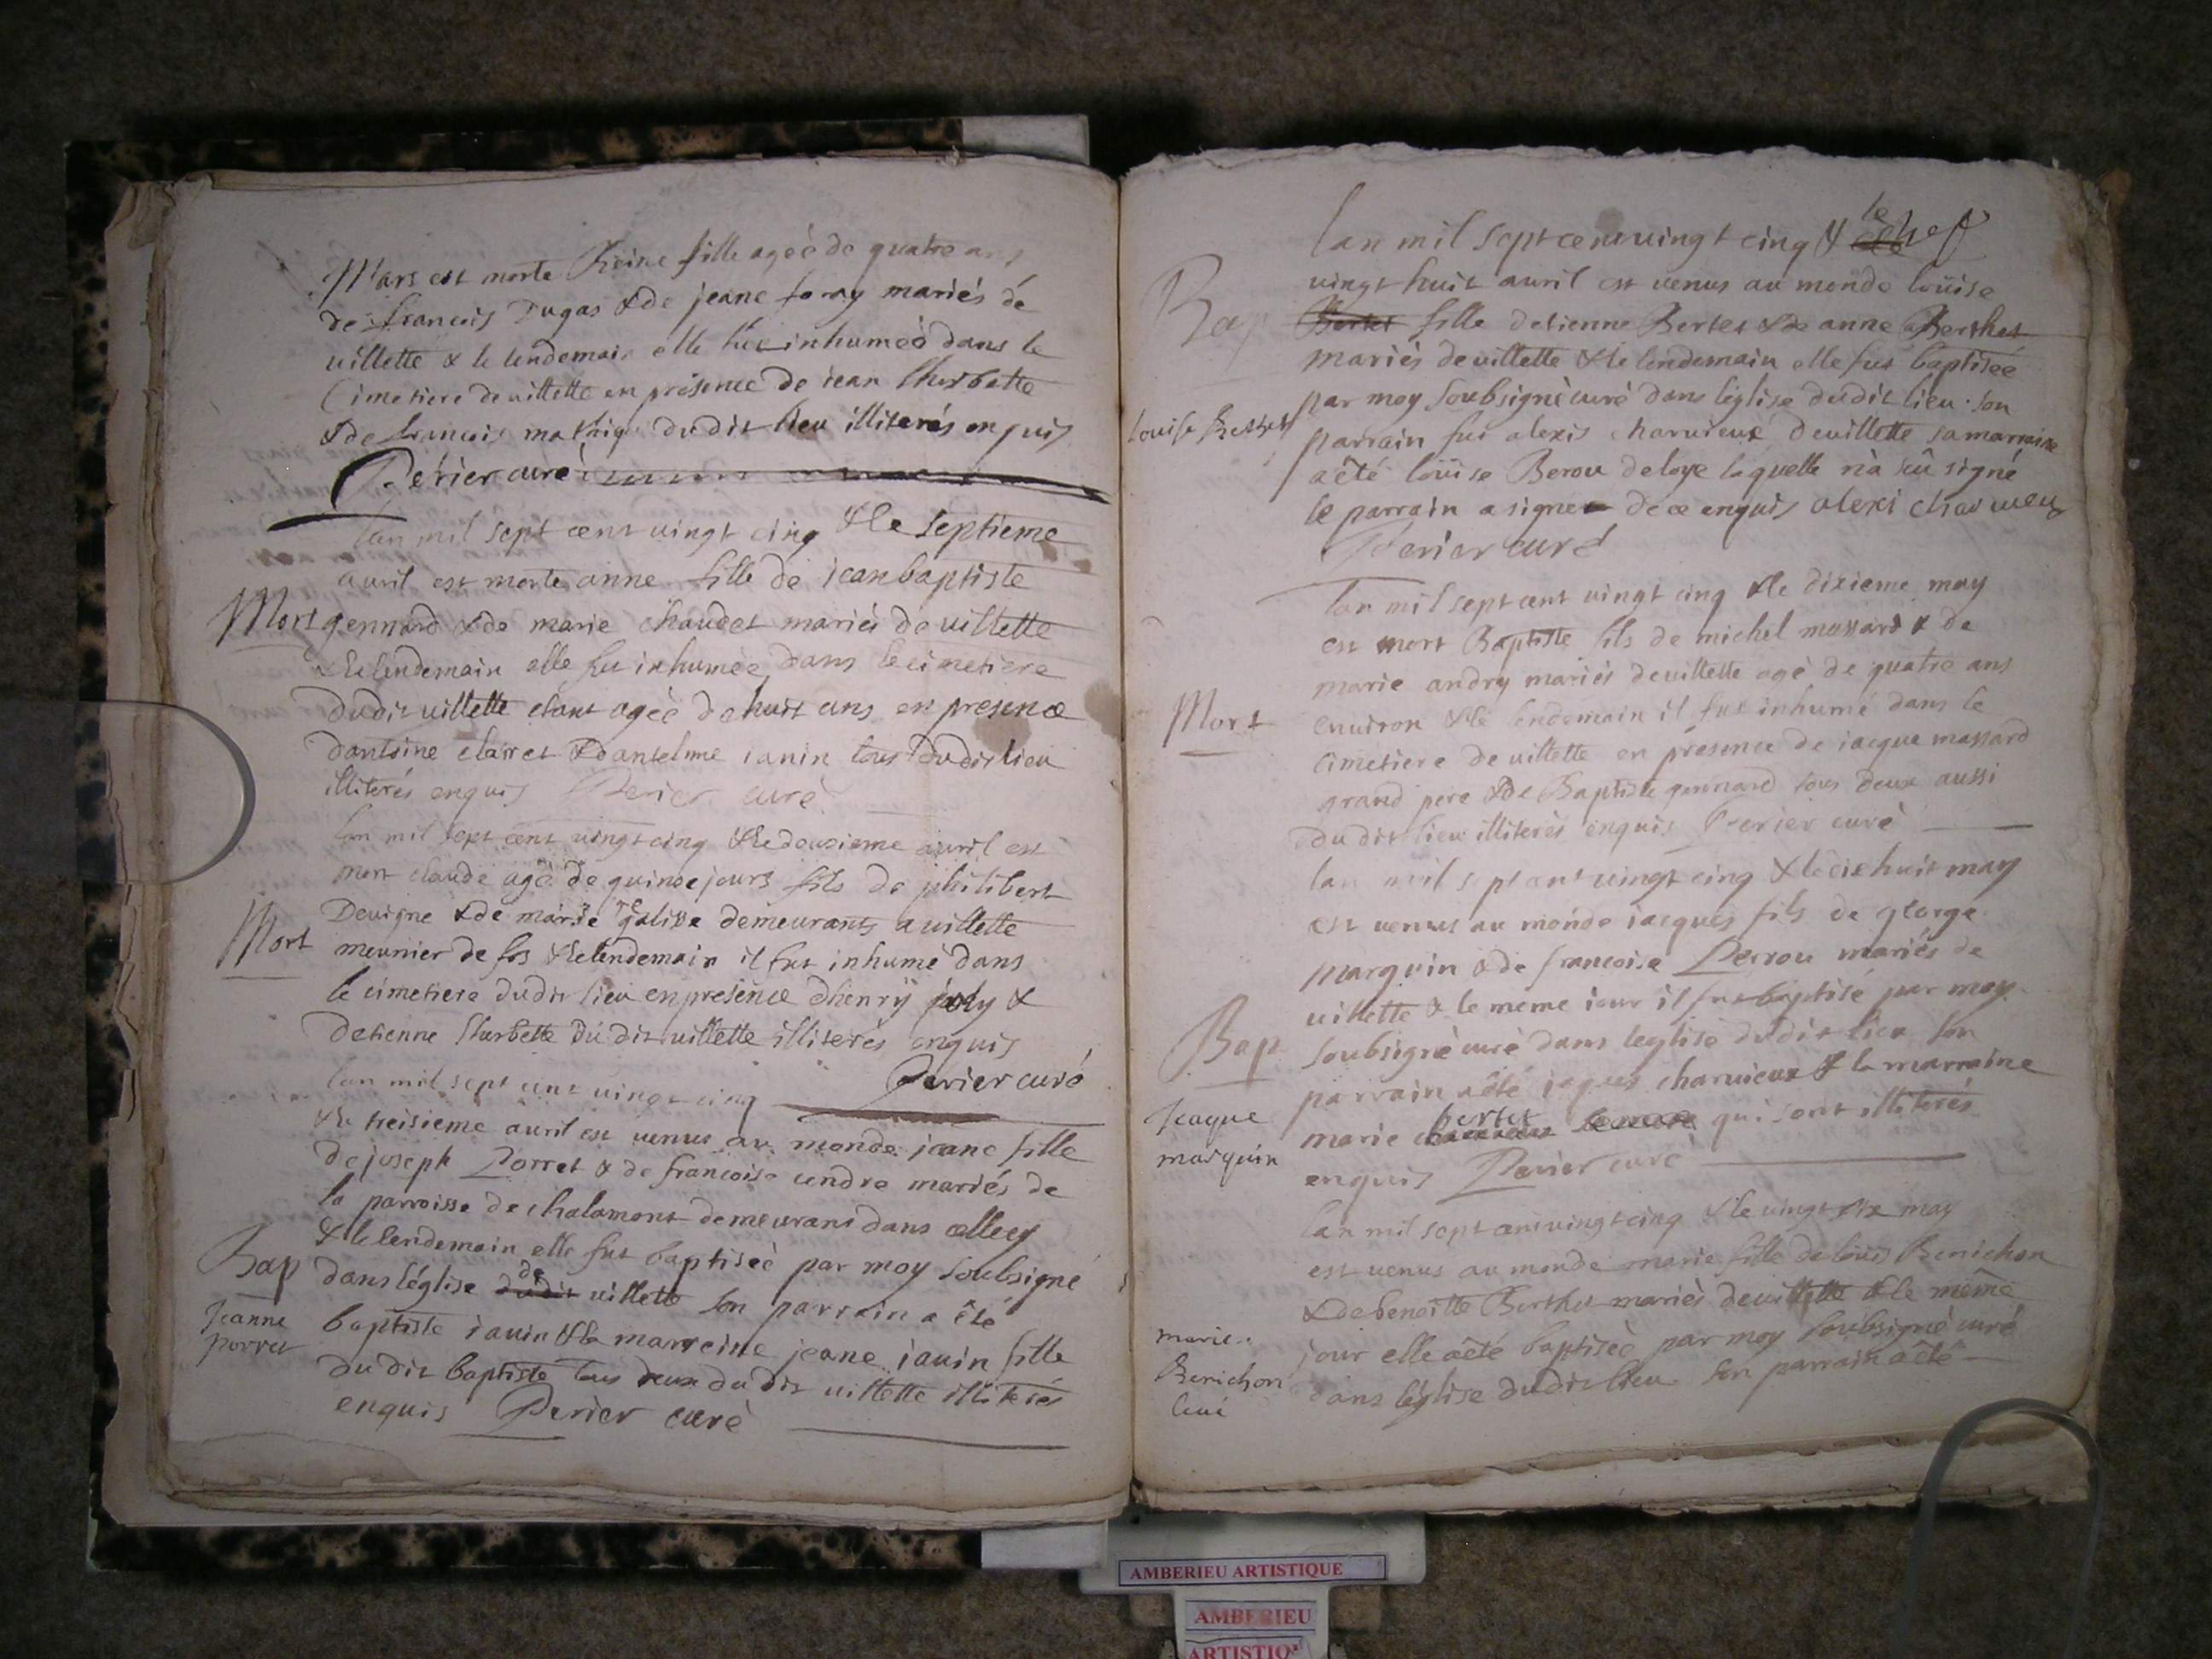 Mars est morte Reine fille ageè de quatre ans
de francois Dugas & de jeane foray mariés de
villette & le lendemain elle fut inhumeé dans le
Cimetiere de villette en présence de jean lherbette
& de francois mathigu dudit lieu illiterés enquis
Perier curè
lan mil sept cent vingt cinq & le septieme
avril est morte anne fille de jean baptiste
Mort gennard & de marie chaudet mariés de villette
& le lendemain elle fut inhumèe dans le cimetiere
dudit villette etant ageè de huit ans en presence
dantoine clairet & dantelme janin tous dudit lieu
illiterés enquis Perier curè
lan mil sept cent vingt cinq & le deuxieme avril est
mort claude agè de quinse jours fils de philibert
Devigne & de marie galisse demeurants a villette
Mort meunier de fos & le lendemain il fut inhumè dans
le cimetiere dudit lieu en presence dhenrÿ joly &
detienne lherbette du dit villette illiterès enquis
lan mil sept cent vingt cinq Perier curé
& le treisieme avril est venue au monde jeane fille
de joseph Porret & de francoise cendre mariés de
la parroisse de chalamont demeurant dans celle cy
& le lendemain elle fut baptiseè par moy soubsigné
Bap dans léglise dudit de villette son parrain a été
Jeanne porret
baptiste janin & la marreine jeane janin fille
du dit baptiste tous deux du dit villette illiterés
enquis Perier curè
lan mil sept cent vingt cinq & le
vingt huit avril est venus au monde loüise
Bap Bertet fille detienne Bertet & de anne Berthet
mariés de villette & le lendemain elle fut baptiseé
par moy soubsigné curé dans léglise dudit lieu. son
louise Bertet
parrain fut alexis charvieux de villette sa marraine
a été loüise Berou deloye laquelle n'a sçû signé
le parrain a signé de ce enquis alexi charvieu
Perier curé
lan mil sept cent vingt cinq & le dixieme may
est mort Baptiste fils de michel massard & de
marie andry mariés de villette agè de quatre ans
Mort environ & le lendemain il fut inhumé dans le
cimetiere de villette en présence de jacque massard
grand pere & de Baptiste gennard tous deux aussi
du dit lieu illiterès enquis Perier curè
lan mil sept cent vingt cinq & le dix huit may
est venus au monde jacques fils de george
marquin & de francoise Perrou mariés de
villette & le meme jour il fut baptisé par moy
Bap soubsigné curè dans leglise dudit lieu son
parrain a été jaques charvieux & la marraine
Jeaque marquin
marie bertet qui sont illiterés
enquis Perier curè
lan mil sept cent vingt cinq & le vingt six may
est venus au monde marie fille de loüis Benichon
& de benoitte Berthet mariés de villette & le meme
jour elle a été baptiseè par moy soubsigné curé
marie Benichon
dans léglise dudit lieu son parrain a été
AMBERIEU ARTISTIQUE
AMBERIEU
ARTISTIQ